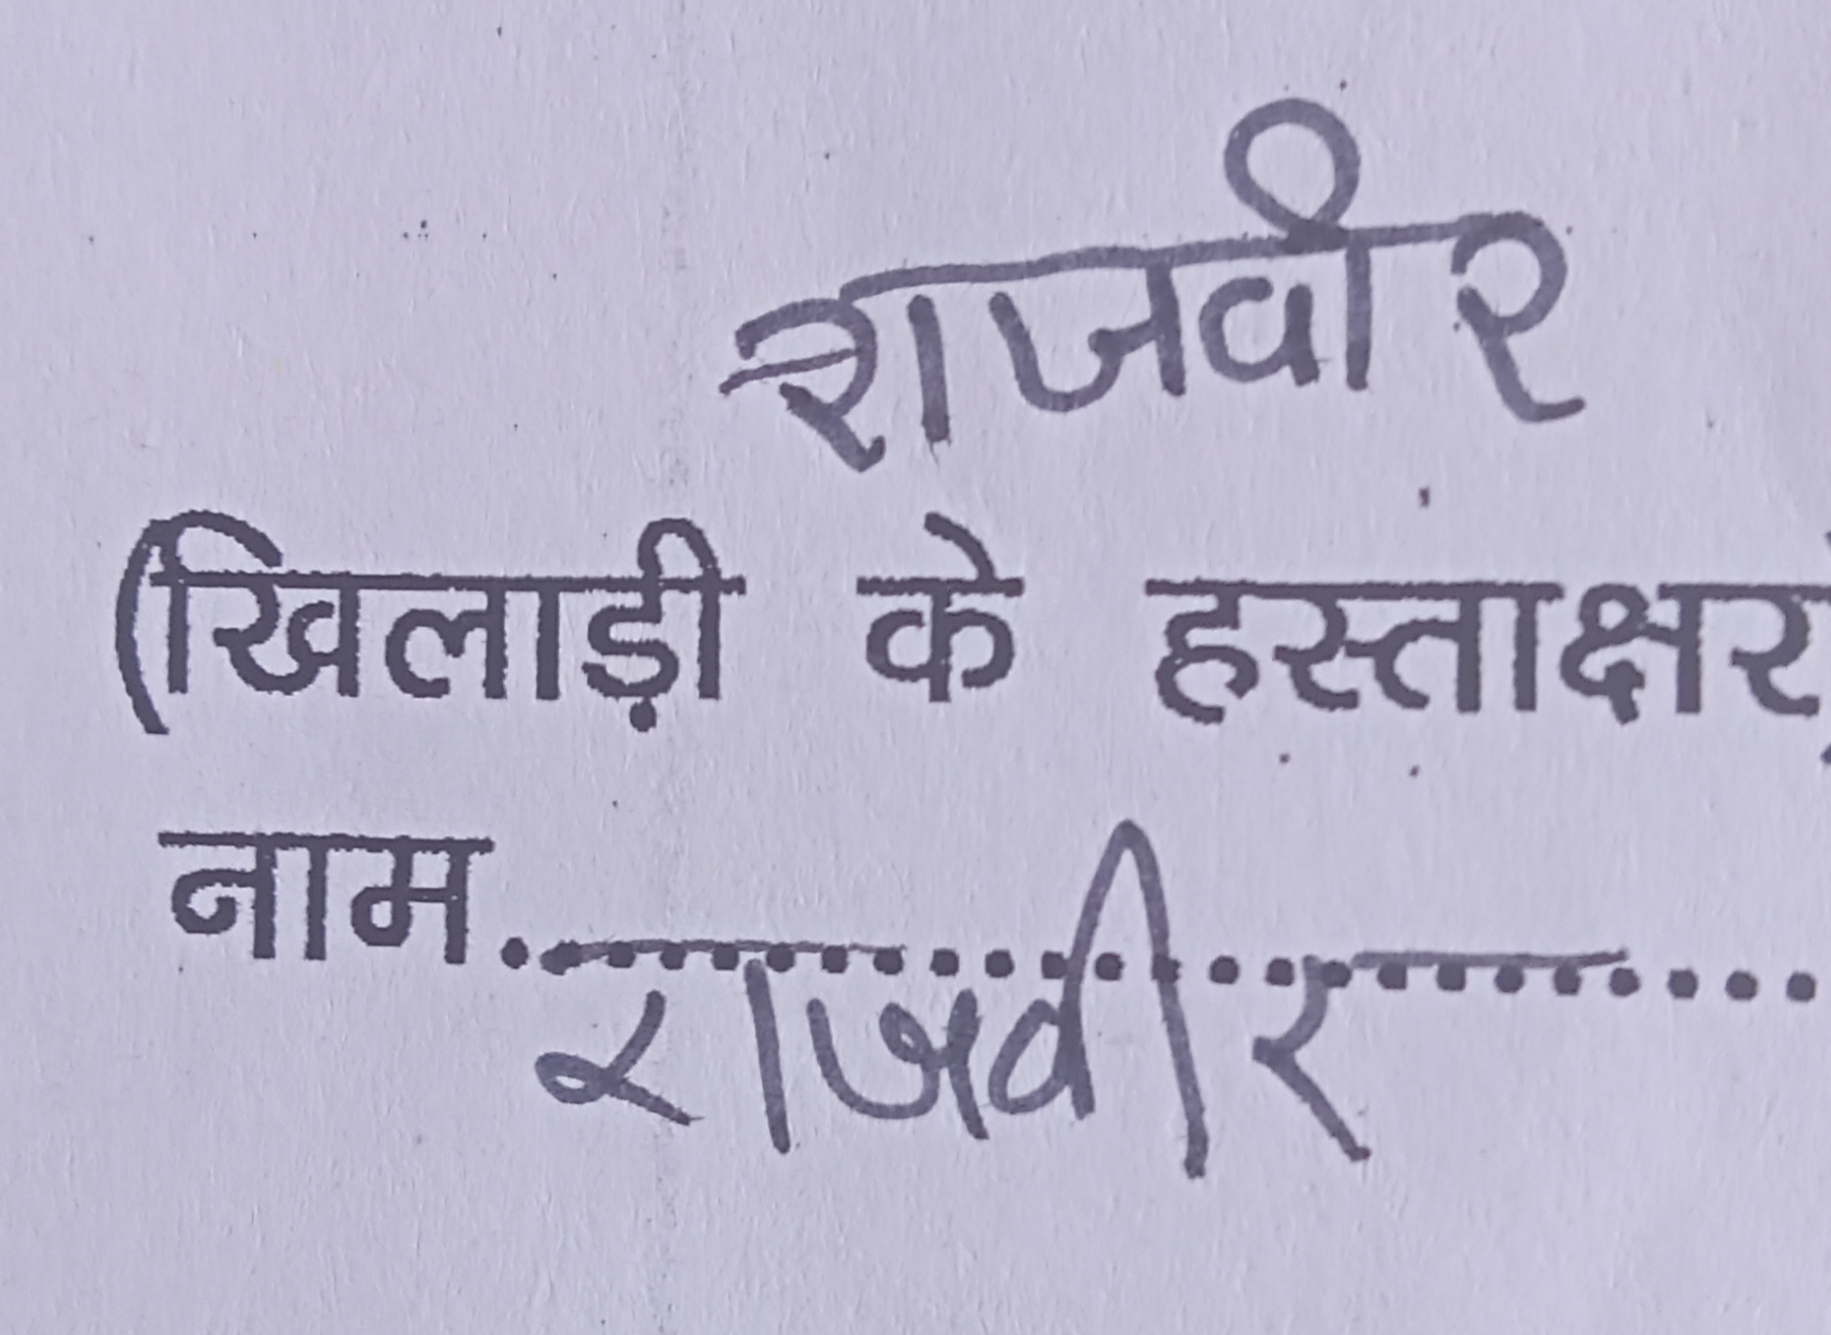 राजवीर
(खिलाड़ी के हस्ताक्षर)
नाम..................
राजवीर